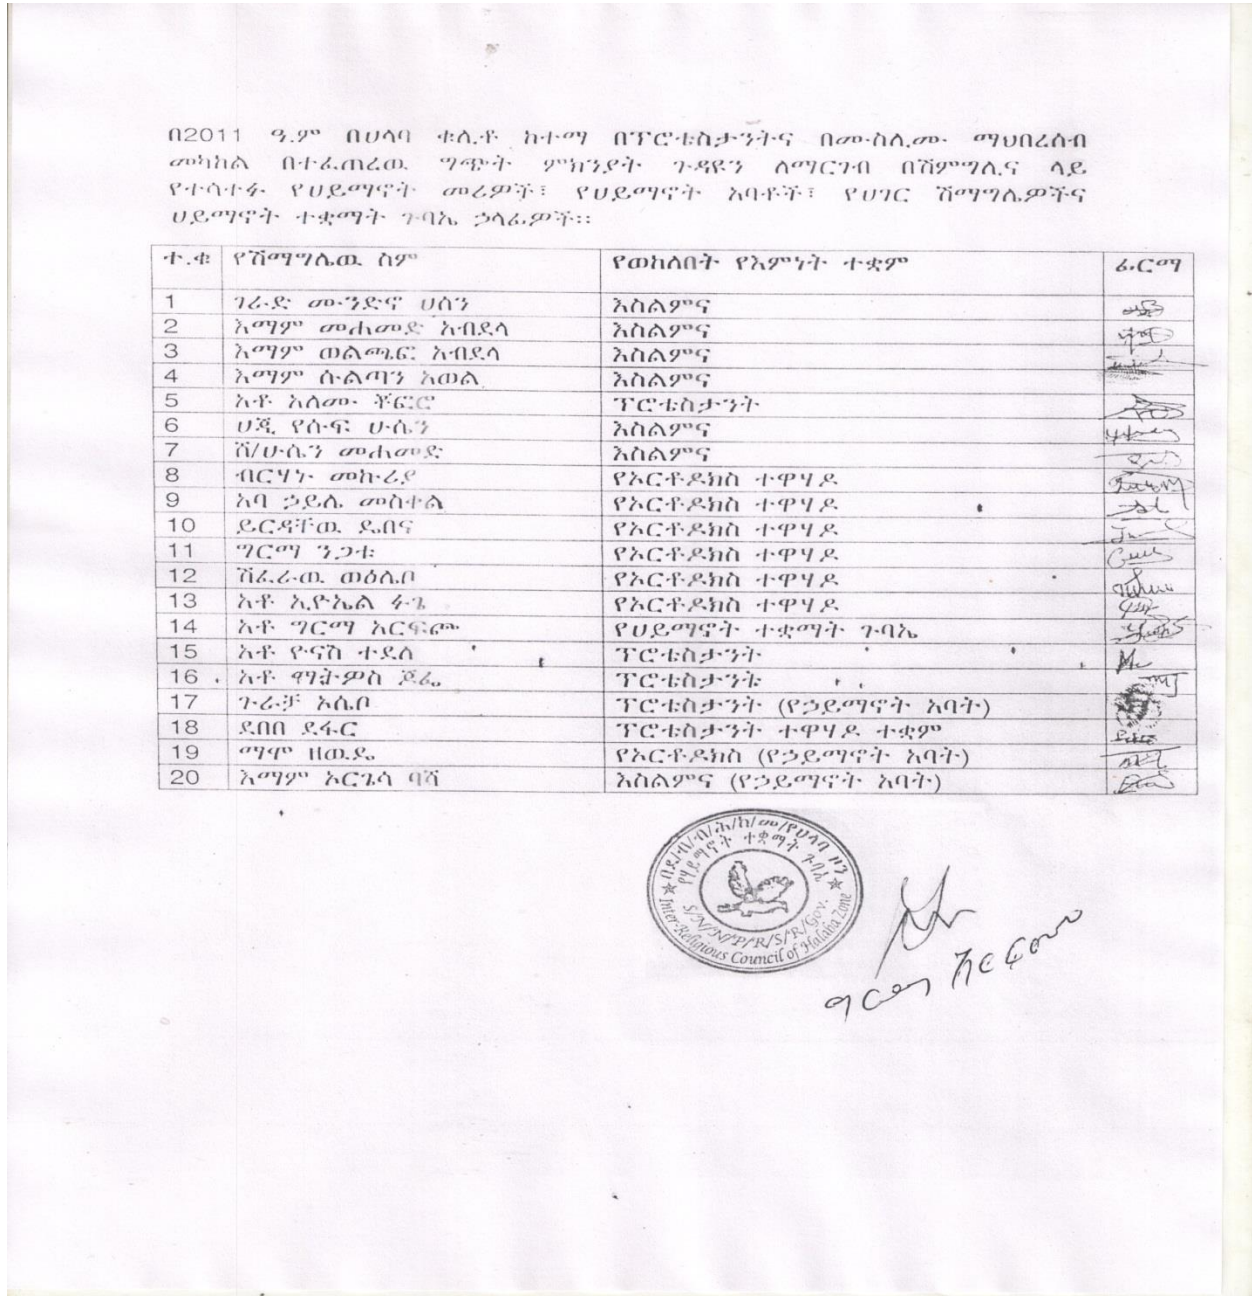 በ2011 ዓ.ም በሀላባ ቁሊቶ ከተማ በፕሮቴስታንትና በሙስሊሙ ማህበረሰብ
መካከል በተፈጠረዉ ግጭት ምክንያት ጉዳዩን ለማርገብ በሽምግሊና ላይ
የተሳተፉ የሀይማኖት መሪዎች፣ የሀይማኖት አባቶች፣ የሀገር ሽማግሌዎችና
ሀይማኖት ተቋማት ጉባኤ ኃላፊዎች።
ተ.ቁ የሽማግሌዉ ስም የወከለበት የእምነት ተቋም ፊርማ
1 ገራድ ሙንድኖ ሀሰን እስልምና
2 እማም መሐመድ አብደላ እስልምና
3 እማም ወልጫፎ አብደላ እስልምና
4 እማም ሱልጣን አወል እስልምና
5 አቶ አለሙ ቾፎሮ ፕሮቴስታንት
6 ሀጂ የሱፍ ሁሴን እስልምና
7 ሸ/ሁሴን መሐመድ እስልምና
8 ብርሃኑ መኩሪያ የኦርቶዶክስ ተዋሃዶ
9 አባ ኃይሌ መስተል የኦርቶዶክስ ተዋሃዶ
10 ይርዳቸዉ ደበና የኦርቶዶክስ ተዋሃዶ
11 ግርማ ንጋቱ የኦርቶዶክስ ተዋሃዶ
12 ሽፈራዉ ወዕሌቦ የኦርቶዶክስ ተዋሃዶ
13 አቶ ኢዮኤል ፉጌ የኦርቶዶክስ ተዋሃዶ
14 አቶ ግርማ አርፍጮ የሀይማኖት ተቋማት ጉባኤ
15 አቶ ዮናስ ተደለ ፕሮቴስታንት
16 አቶ ማትዎስ ጆፌ ፕሮቴስታንት
17 ጉራቻ ኦሴቦ ፕሮቴስታንት (የኃይማኖት አባት)
18 ደበበ ደፋር ፕሮቴስታንት ተዋሃዶ ተቋም
19 ማሞ ዘዉዴ የኦርቶዶክስ (የኃይማኖት አባት)
20 እማም ኦርጌሳ ባሻ እስልምና (የኃይማኖት አባት)
በደ/ብ/ብ/ሕ/ክ/መ/የሀላባ ዞን
የሃይማኖት ተቋማት ጉባኤ
S/N/N/P/R/S/R/Gov.
Inter-Religious Council of Halaba Zone
ግርማ አርፍጮ